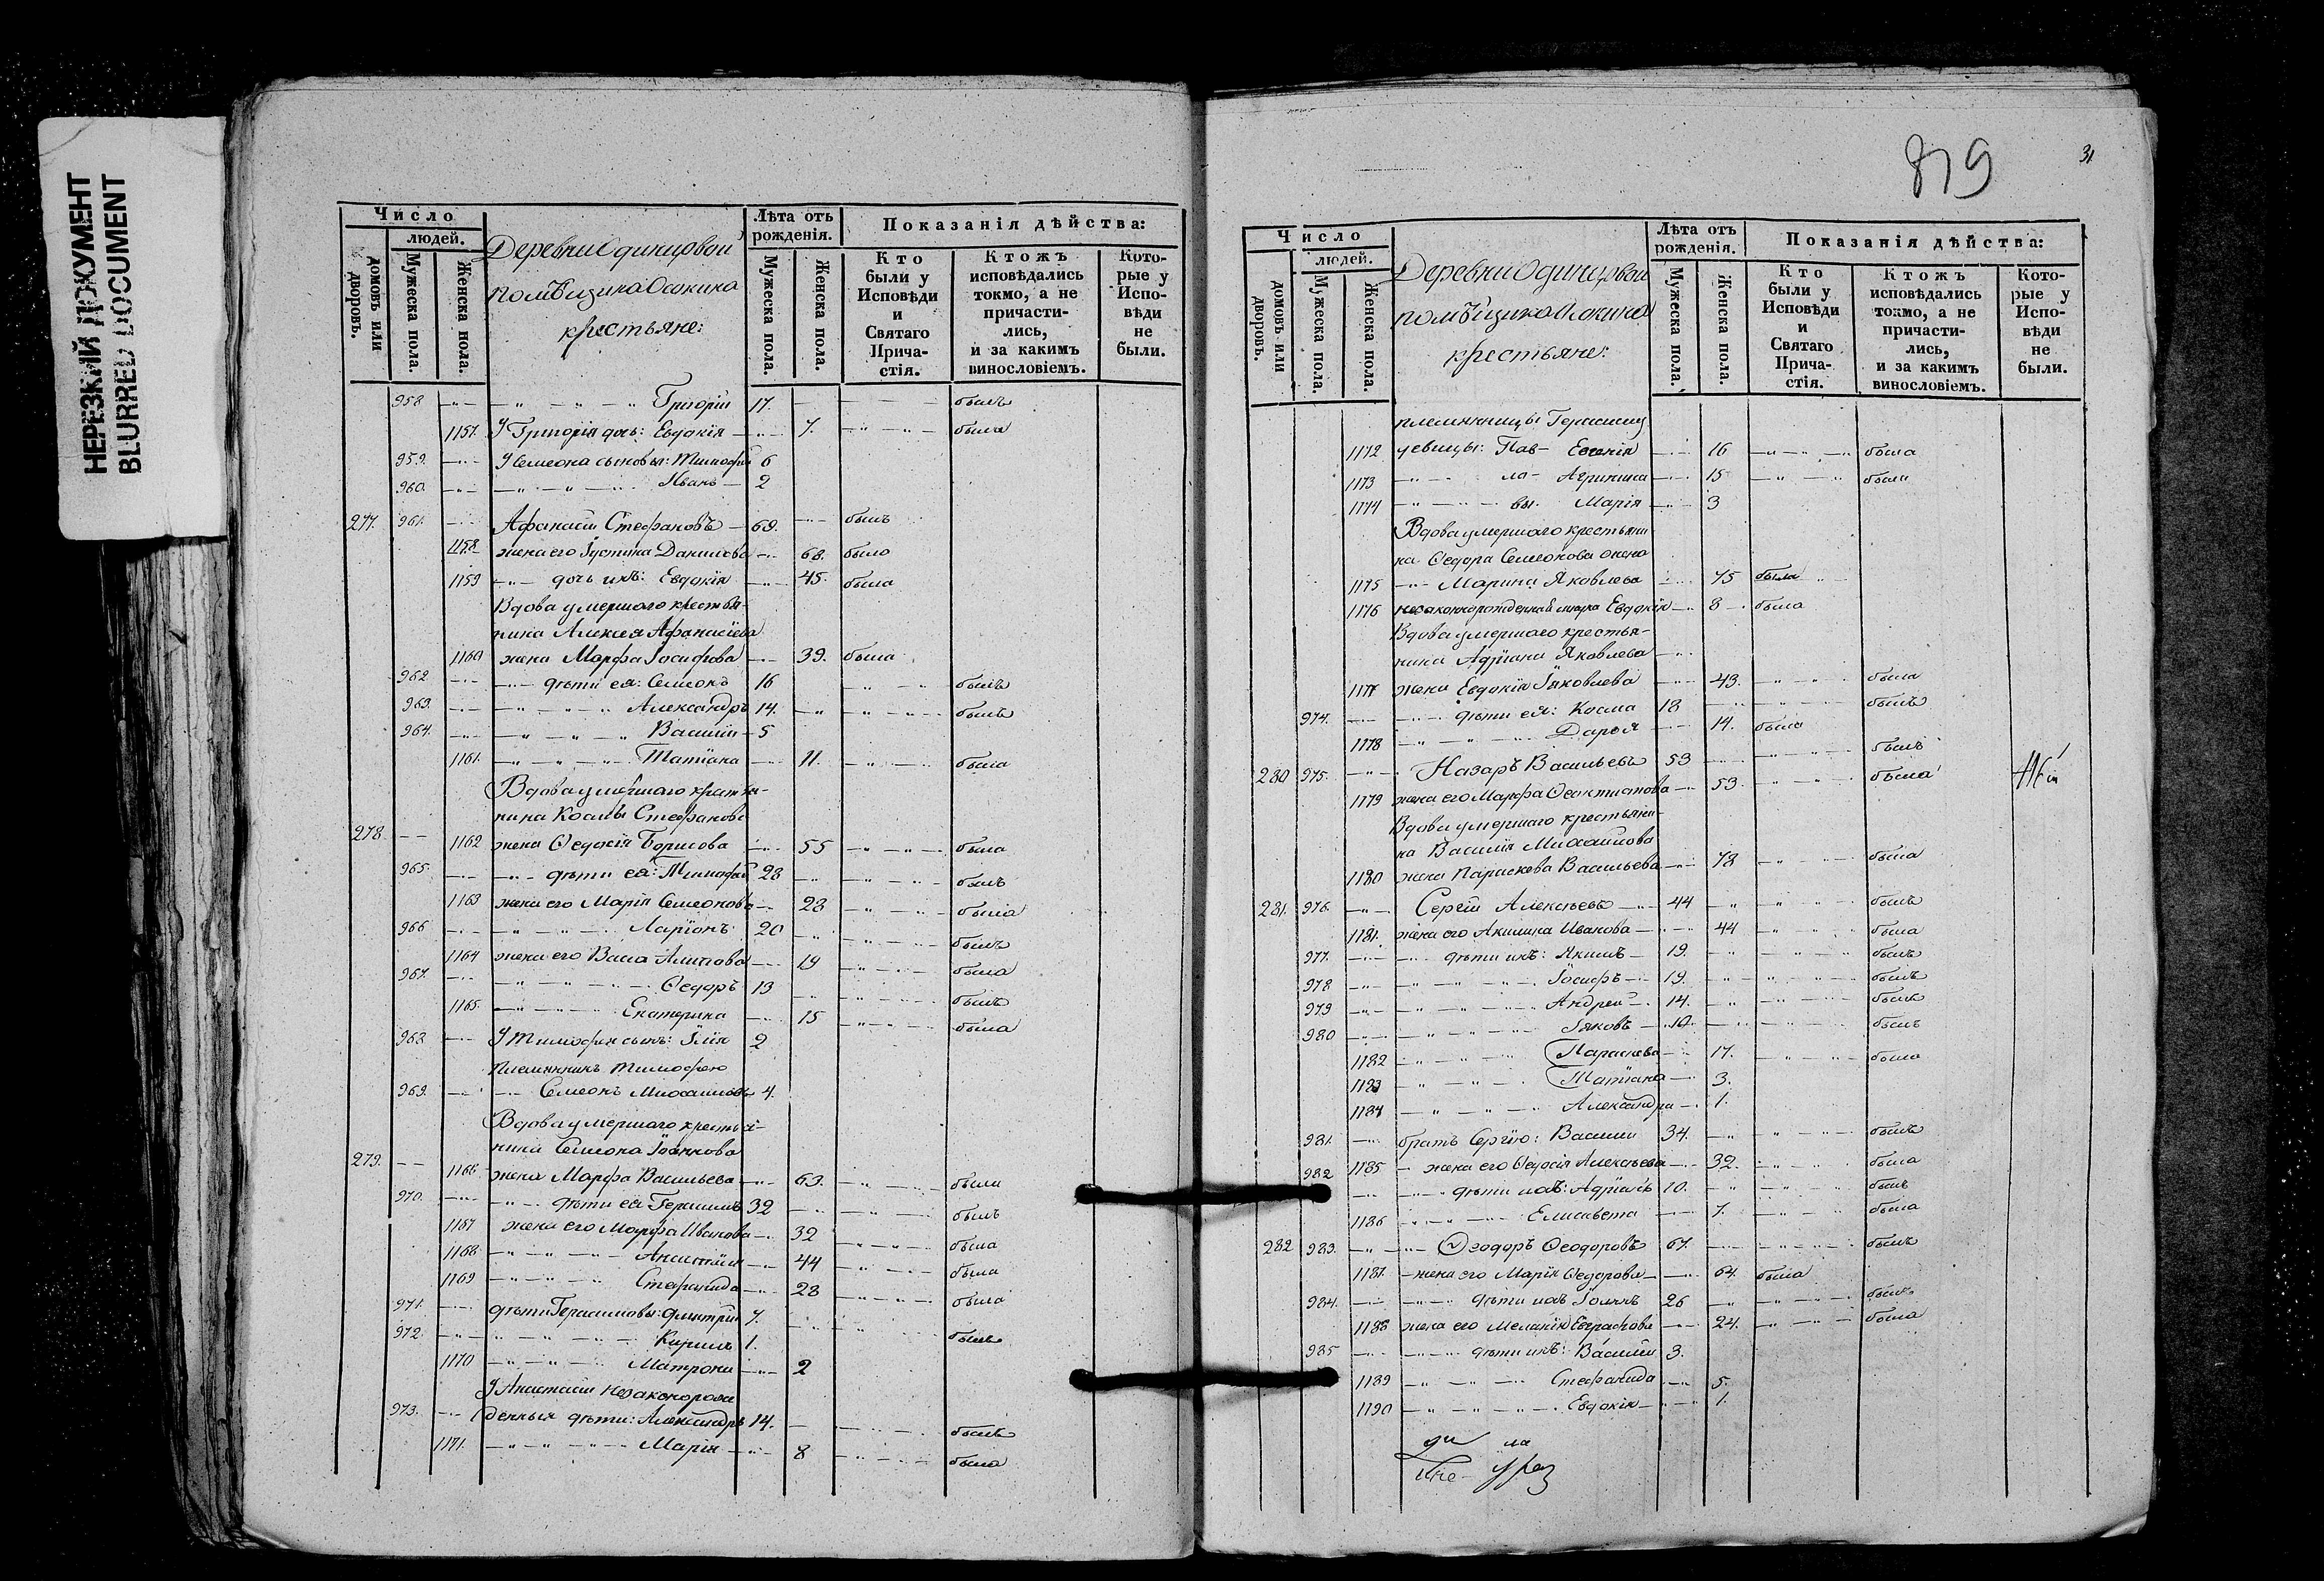 НЕРЕЗКИЙ ДОКУМЕНТ
BLURRED DOCUMENT
Число
людей.
домовъ или дворовъ.
Мужеска пола.
Женска пола.
Деревни Одинцовой
помѣщика Осокина
крестьяне:
Лѣта отъ рожденія.
Мужеска пола.
Женска пола.
Показанія дѣйства:
Кто были у Исповѣди и Святаго Прича-стія.
Ктожъ исповѣдались токмо, а не причасти-лись, и за какимъ винословіемъ.
Кото-рые у Испо-вѣди не были.
958 Григорій 17. былъ
1157. У Григорія дочь: Евдокія 7. была
959. У Семеона сыновья: Тимофей 6
960. Иванъ 2
277. 961. Афанасій Стефановъ 69. былъ
1158. жена его Іустина Данилова 68. была
1159 дочь ихъ: Евдокія 45. была
Вдова умершаго крестья-
нина Алексея Афанасіева
1160 жена Марфа Іосифова 39. была
962 дѣти ея: Семеонъ 16 былъ
963. Александръ 14. былъ
964. Василій 5
1161. Татіана 11. была
Вдова умершаго крестья-
нина Космы Стефанова
278. 1162 жена Ѳедосія Борисова 55 была
965. дѣти ея: Тимофей 28 былъ
1163 жена его Марія Семеонова 28 была
966 Ларіонъ 20 былъ
1164 жена его Васса 19 была
967. Ѳедоръ 13 былъ
1165. Екатерина 15 была
968 У Тимофея сынъ: Илія 2
Племянникъ Тимофею
969. Семеонъ Михаиловъ 4.
Вдова умершаго крестья-
нина Семеона
279. 1166 жена Марфа Васильева 63. была
970. дѣти ея Герасимъ 32 былъ
1167 жена его Марфа Иванова 32 была
1168 Анастасія 44 была
1169 Стефанида 28 была
971. дѣти Герасимовы: Дмитрій 7. былъ
972. Кирилъ 1.
1170 Матрона 2
У Анастасіи незаконорож
973. денныя дѣти: Александръ 14. былъ
1171. Марія 8 была
819
31
Число
людей.
домовъ или дворовъ.
Мужеска пола.
Женска пола.
Деревни Одинцовой
помѣщика Осокина
крестьяне:
Лѣта отъ рожденія.
Мужеска пола.
Женска пола.
Показанія дѣйства:
Кто были у Исповѣди и Святаго Прича-стія.
Ктожъ исповѣдались токмо, а не причасти-лись, и за какимъ винословіемъ.
Кото-рые у Испо-вѣди не были.
племянницы Герасиму
1172 девицы: Пав- 16 была
1173 ло- Агрипина 15 была
1174 вы. Марія 3
Вдова умершаго крестьяни
на Ѳедора Семеонова жена
1175 Марина Яковлева 75 была
1176 незаконнорожденная Евдокія 8 была
Вдова умершаго крестья-
нина Адріана Яковлева
1177 жена Евдокія Іяковлева 43. была
974. дѣти ея: Косма 18 былъ
1178 Дарья 14. была
280 975. Назаръ Васильевъ 53 былъ
1179 жена его Марфа Ѳеоктистова 53 была
Вдова умершаго крестьяни-
на Василія Михаилова
1180 жена Параскева Васильева 78 была
281. 976. Сергій Алексѣевъ 44 былъ
1181. жена его Акилина Иванова 44 была
977. дѣти ихъ: Якимъ 19. былъ
978 Іосифъ 19. былъ
979 Андрей 14. былъ
980 Іяковъ 10. былъ
1182 Параскева 17. была
1183 Татіана 3.
1184 Александра 1.
981. братъ Сергію: Василій 34. былъ
1185 жена его Ѳедосія Алексѣева 32. была
982 дѣти ихъ: Адріанъ 10. былъ
1186 Елисавета 7. была
282 983. Ѳеодоръ Ѳеодоровъ 67. былъ
1187. жена его Марія Ѳедорова 64. была
984. дѣти ихъ Іоаннъ 26 былъ
1188 жена его Меланія Евграфова 24. была
985 дѣти ихъ: Василій 3.
1189 Стефанида 5.
1190 Евдокія 1.